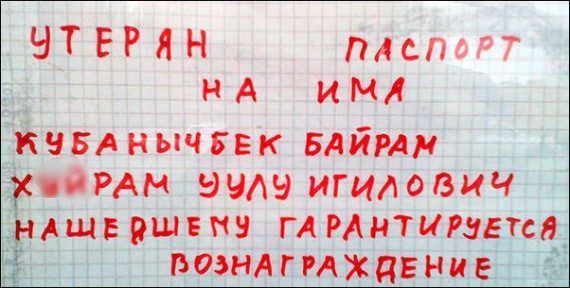 УТЕРЯН ПАСПОРТ
НА ИМА
КУБАНЫЧБЕК БАЙРАМ
УУЛУ ИГИЛОВИЧ
НАШЕДШЕМУ ГАРАНТИРУЕТСЯ
ВОЗНАГРАЖДЕНИЕ